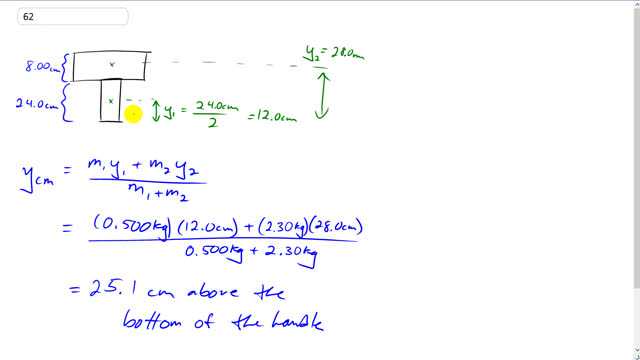 62
y₂ = 28.0m
8.00cm
24.0cm
y₁ = 24.0cm / 2 = 12.0cm
y_cm = m₁y₁ + m₂y₂ / m₁ + m₂
= (0.500kg)(12.0cm) + (2.30kg)(28.0cm) / 0.500kg + 2.30kg
= 25.1 cm above the
bottom of the handle